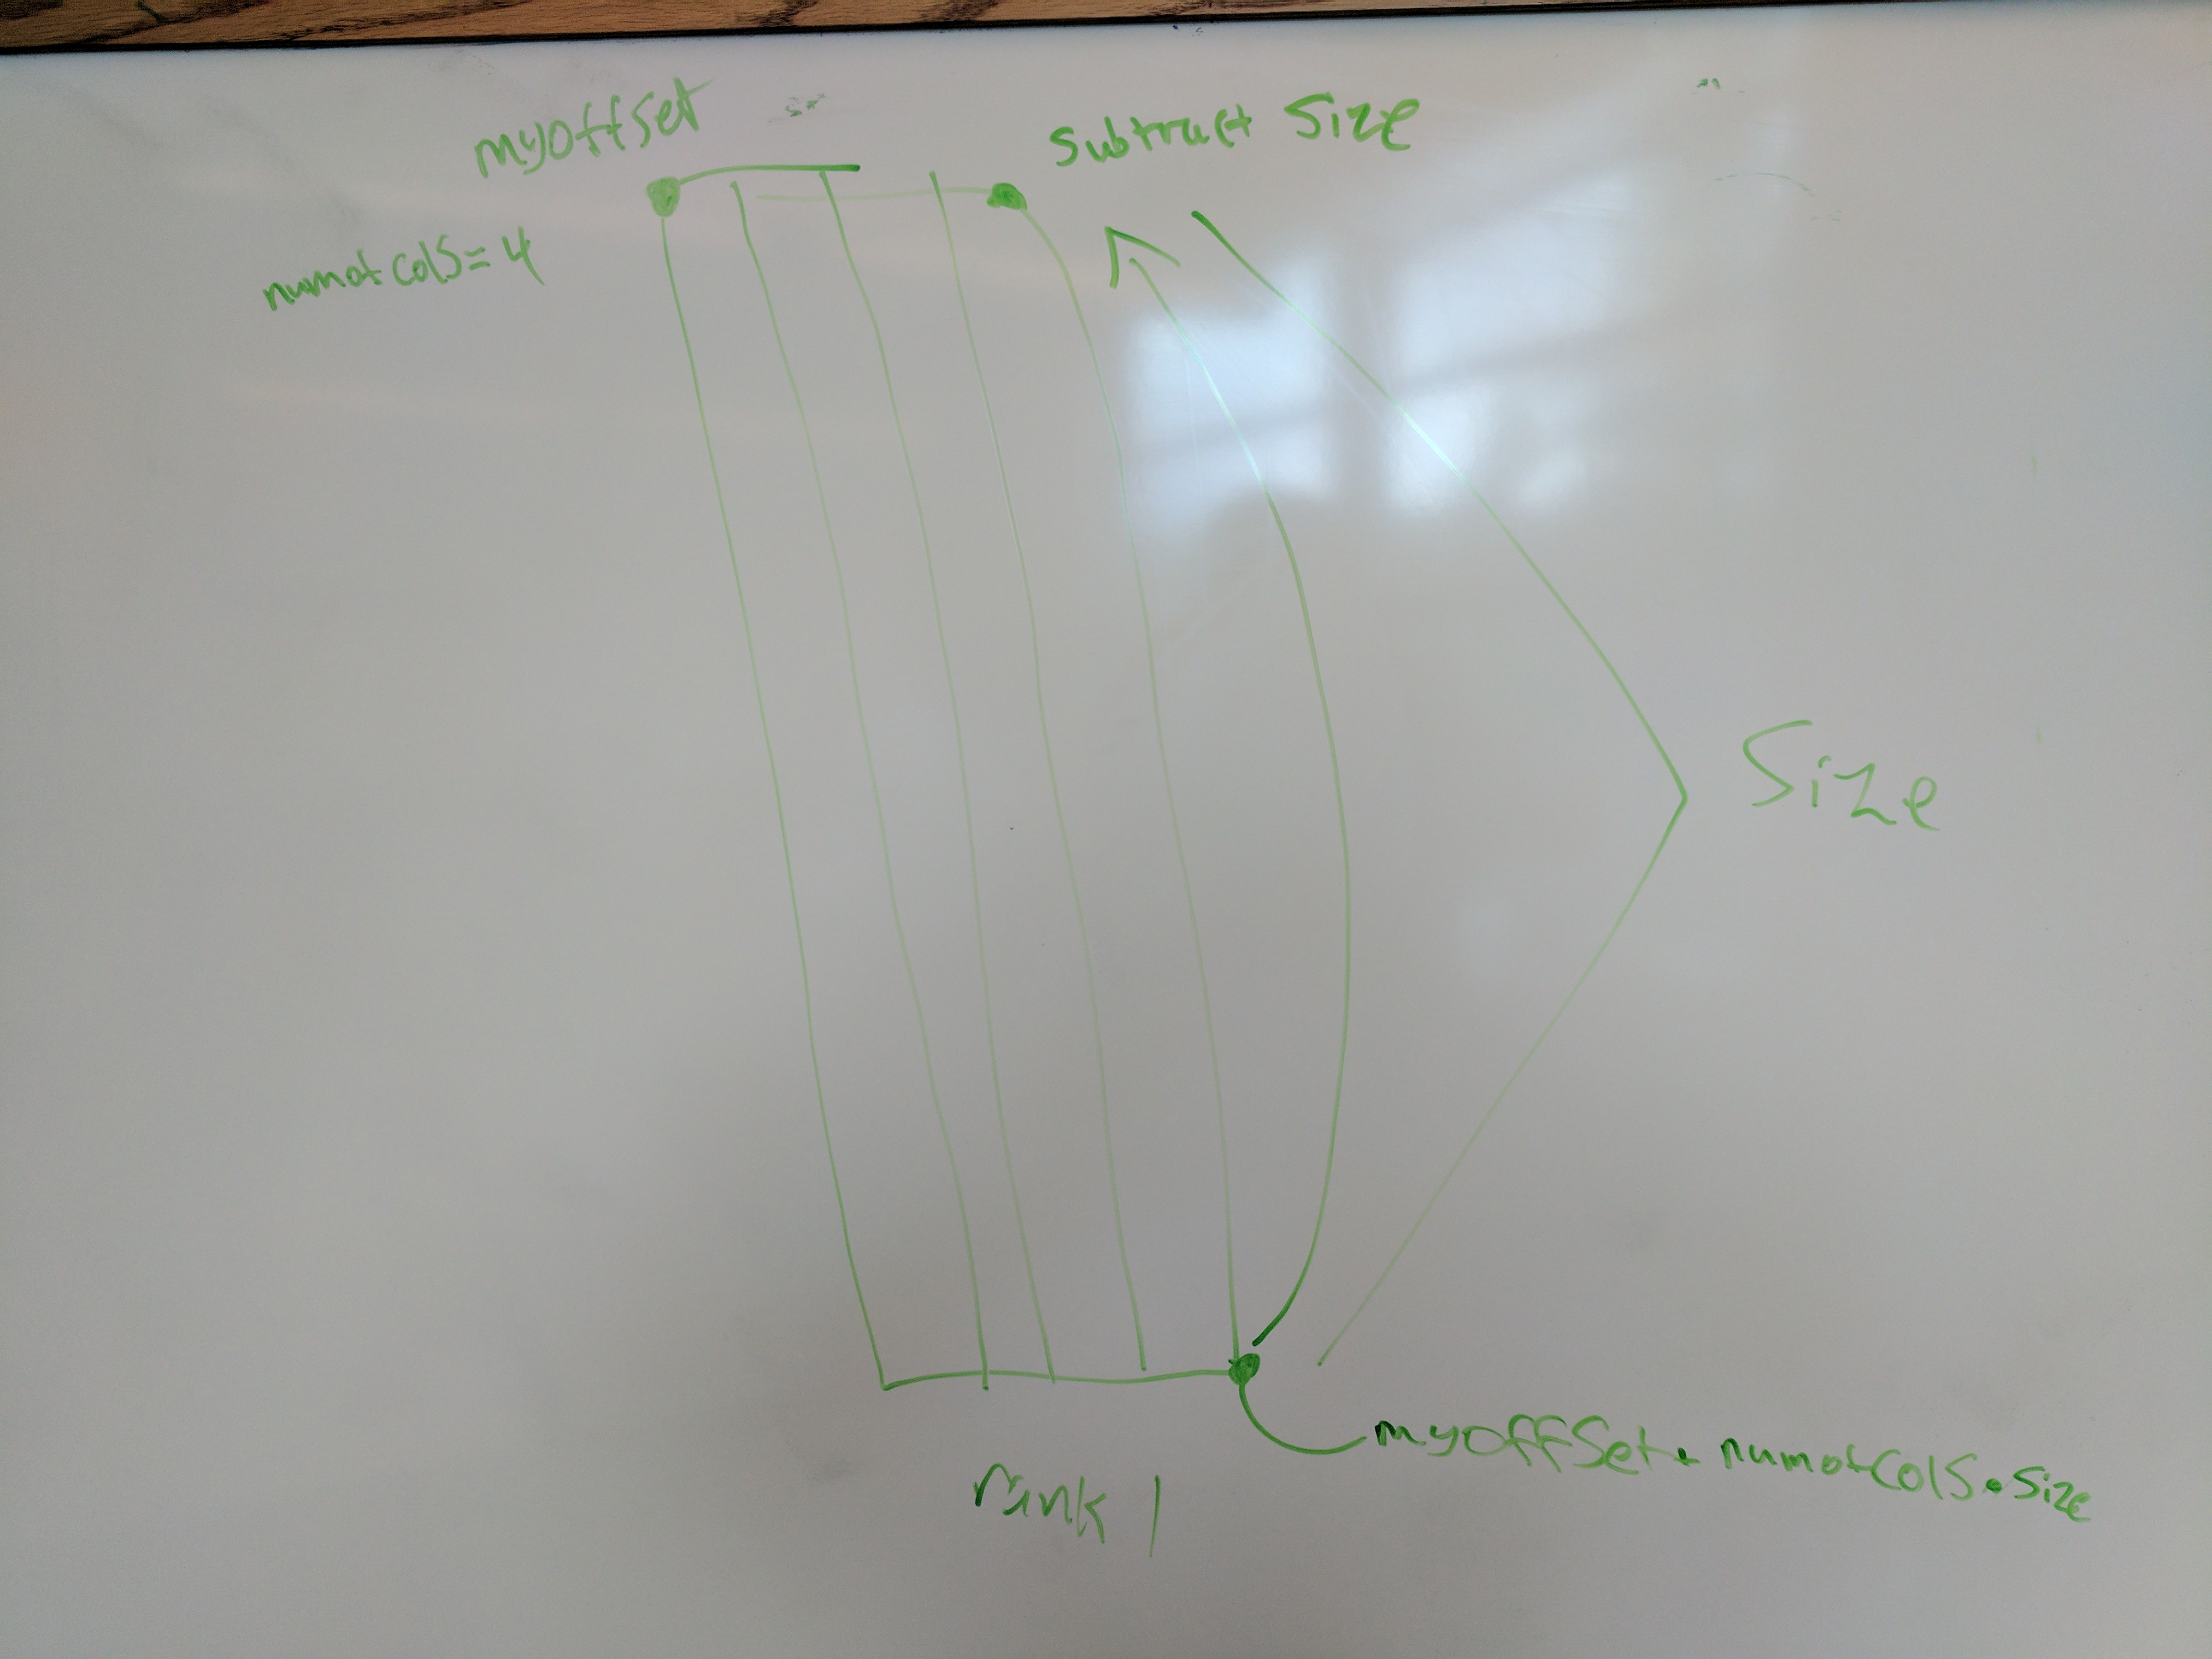 myoffset
subtract Size
numofcols=4
Size
myoffset+ numofcols•size
rank 1